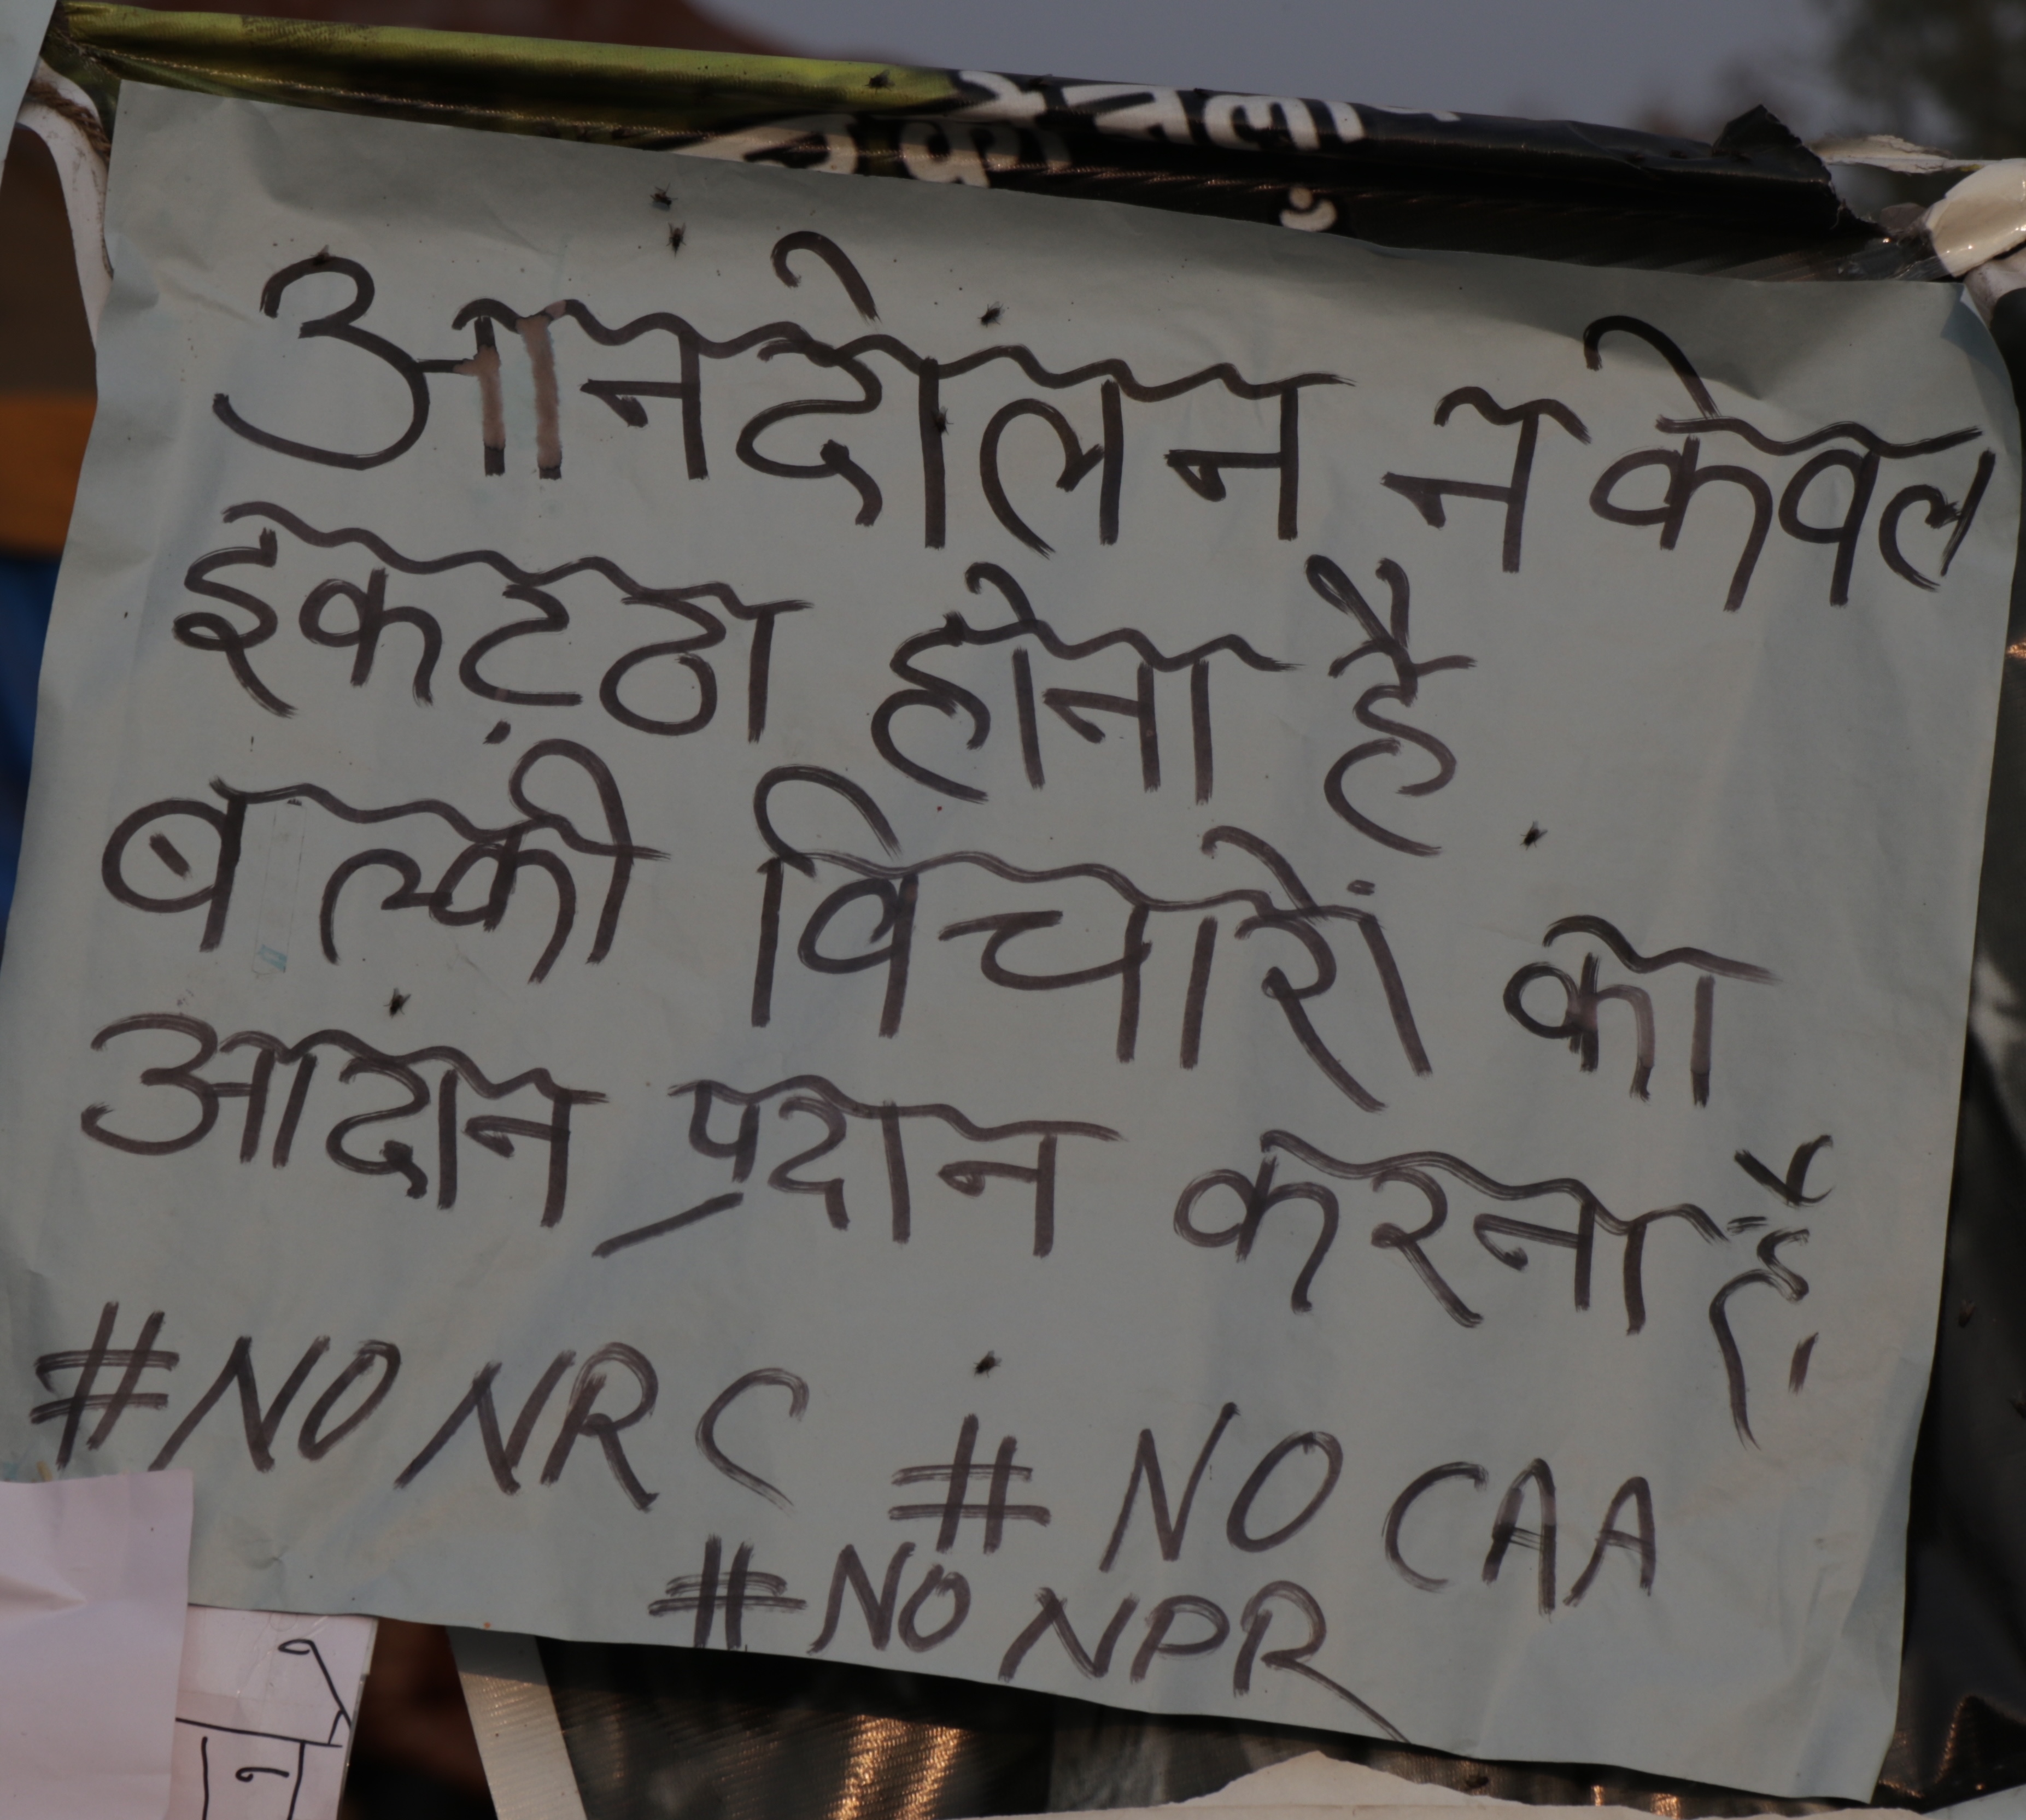 आनदोलन न केवल
इकट़ठा होना है
बल्की विचारों का
आदान प्रदान करना है।
#NO NRC # NO CAA
#NO NPR